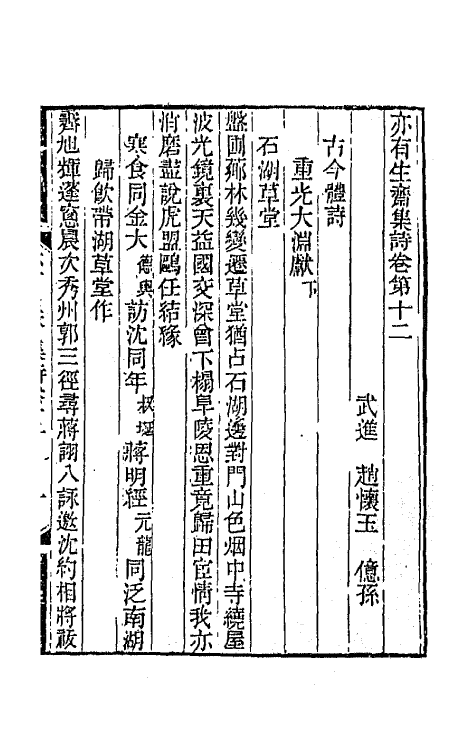 亦有生齋集詩卷第十二
武進　趙懷玉　億孫
古今體詩
重光大淵獻下
石湖草堂
盤囷鄉林幾變遷草堂猶占石湖邊對門山色烟中寺繞屋
波光鏡裏天益國交深曾下榻阜陵恩重竟歸田宦情我亦
消磨盡說虎盟鷗任結緣
寒食同金大德輿訪沈同年 蔣明經元龍同泛南湖
歸飲帶湖草堂作
霽旭輝蓬窗晨次秀州郭三徑尋蔣詡八詠邀沈約相將祓